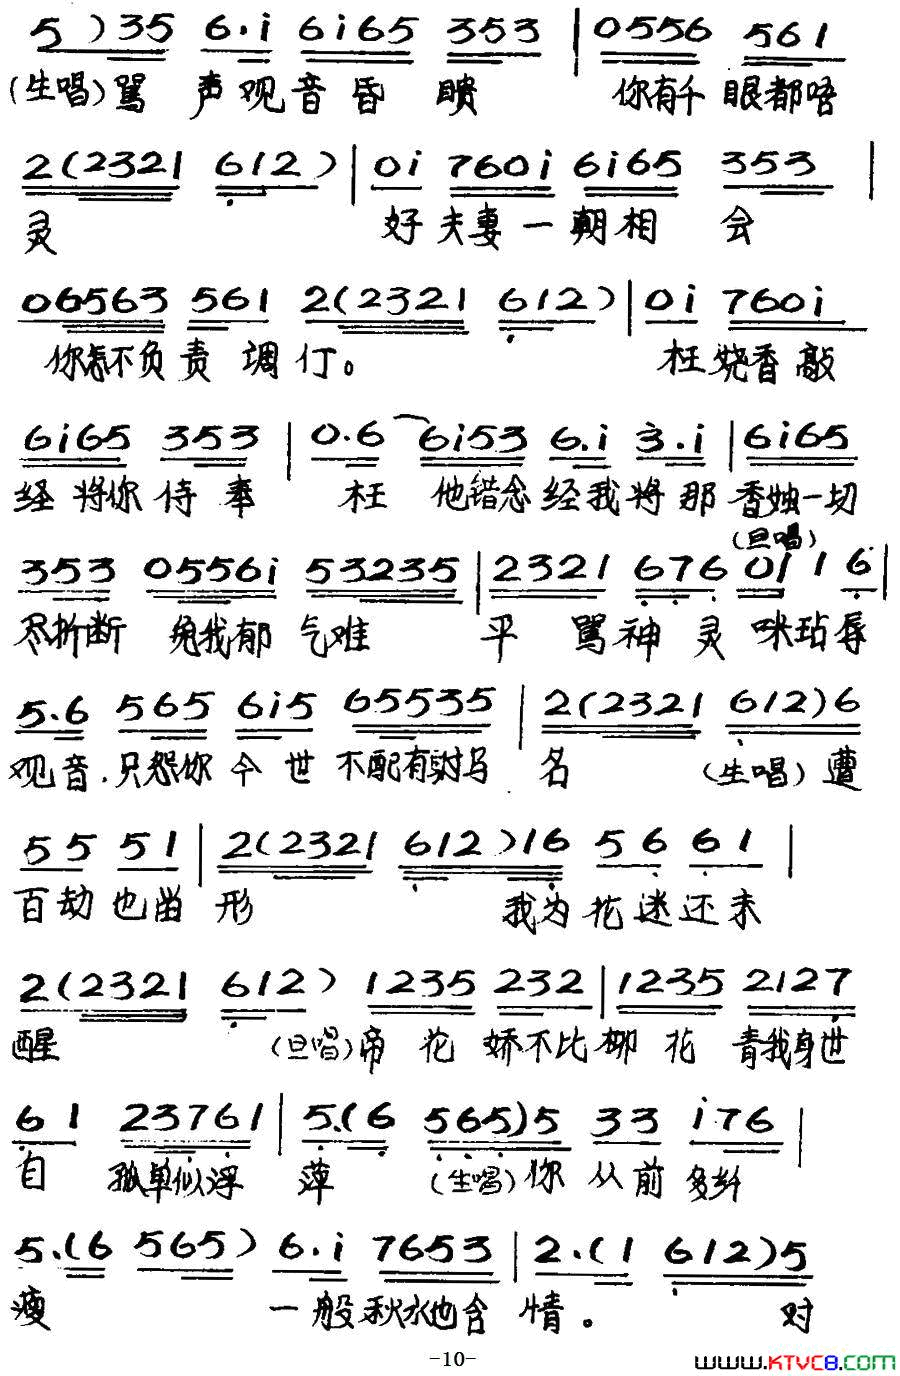 5 ) 35 6·i 6i65 353 | 0556 561
(生唱)骂 声观音昏 聩 你有千眼都唔
2(2321 612) | 0i 760i 6i65 353 |
灵 好夫妻一朝相 会
06563 561 2(2321 612) | 0i 760i
你怎不负责 调仃。 枉烧香敲
6i65 353 | 0·6 6i53 6·i 3·i | 6i65
经将你侍奉 枉 他错念经我将那香烛一切
(旦唱)
353 0556i 53235 | 2321 676 0i 1 6 |
尽折断 免我郁 气难 平 骂神灵咪玷辱
5·6 565 6i5 65535 | 2(2321 612)6
观音.只怨你今世不配有驸马 名 (生唱)遭
55 51 | 2(2321 612)16 56 61 |
百劫也甾形 我为花迷还未
2(2321 612) 1235 232 | 1235 2127
醒 (旦唱)帝 花 娇不比柳 花 青我身世
61 23761 | 5·(6 565)5 33 i76 |
自 孤单似浮 萍 (生唱)你从前多纤
5·(6 565) 6·i 7653 | 2·(1 612)5
瘦 一般秋水也含情。 对
-10-
www.KTVC8.com